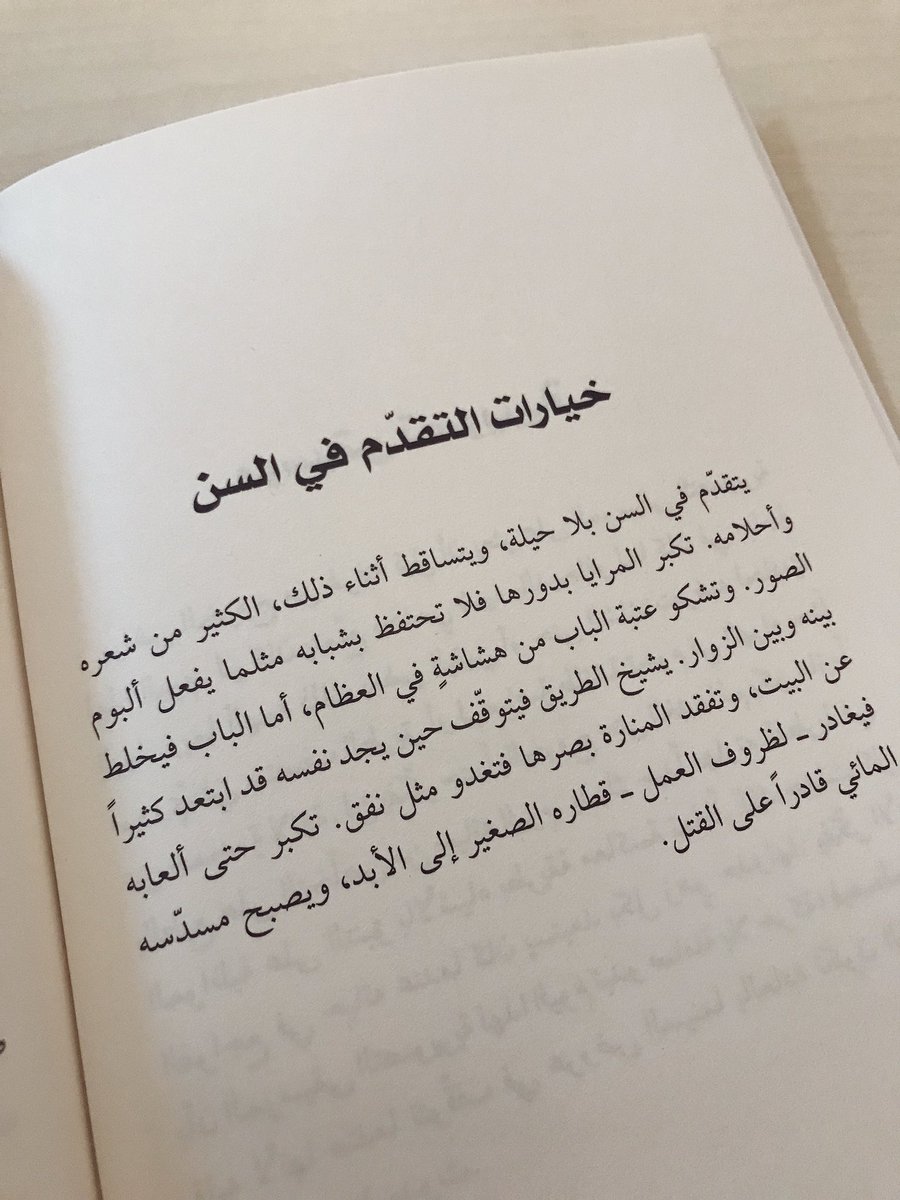 خيارات التقدّم في السن
يتقدّم في السن بلا حيلة، ويتساقط أثناء ذلك، الكثير من شعره
وأحلامه. تكبر المرايا بدورها فلا تحتفظ بشبابه مثلما يفعل ألبوم
الصور. وتشكو عتبة الباب من هشاشةٍ في العظام، أما الباب فيخلط
بينه وبين الزوار. يشيخ الطريق فيتوقّف حين يجد نفسه قد ابتعد كثيراً
عن البيت، وتفقد المنارة بصرها فتغدو مثل نفق. تكبر حتى ألعابه
فيغادر ـ لظروف العمل ـ قطاره الصغير إلى الأبد، ويصبح مسدّسه
المائي قادراً على القتل.